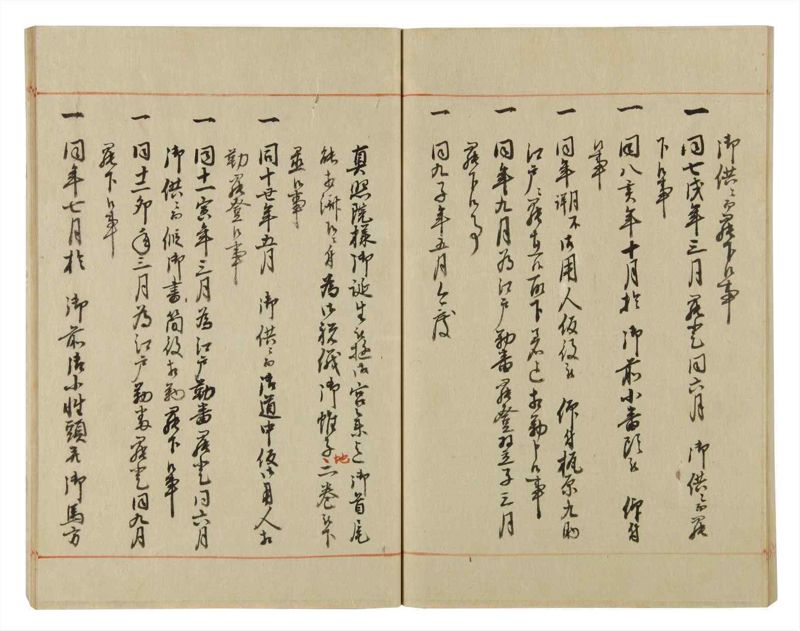 御供ニ而罷下候事
一 同七戌年三月罷登同六月 御供ニ而罷
下候事
一 同八亥年十月於 御前小番頭被 仰付
候事
一 同年 御用人仮役被 仰付梶原九助
江戸江罷下 相勤候事
一 同年九月為江戸勤番罷登翌子三月
罷下候事
一 同九子年五月
真照院様御誕生 御宮参迄御首尾
能相済候ニ付為御祝儀御帷子地二巻被下
置候事
一 同十丑年五月 御供ニ而御道中仮御用人相
勤罷登候事
一 同十一寅年三月為江戸勤番罷登同六月
御供ニ而 御書簡役相勤罷下候事
一 同十二卯年三月為江戸勤番罷登同九月
罷下候事
一 同年七月於 御前御小性頭并御馬方